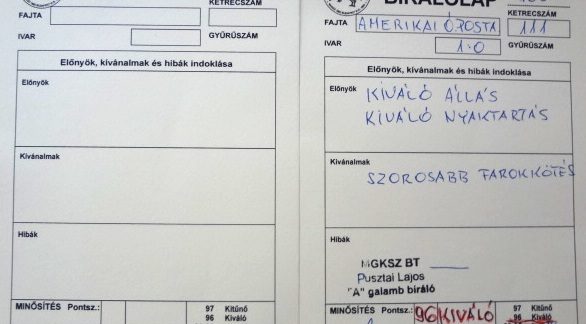 KETRECSZÁM
FAJTA
IVAR
GYŰRŰSZÁM
Előnyök, kívánalmak és hibák indoklása
Előnyök
Kívánalmak
Hibák
MINŐSÍTÉS Pontsz.:
97 Kitűnő
96 Kiváló
BÍRÁLÓLAP
KETRECSZÁM
FAJTA AMERIKAI ÓPOSTA 111
IVAR 1.0 GYŰRŰSZÁM
Előnyök, kívánalmak és hibák indoklása
Előnyök
KIVÁLÓ ÁLLÁS
KIVÁLÓ NYAKTARTÁS
Kívánalmak
SZOROSABB FAROKKÖTÉS
Hibák
MGKSZ BT
Pusztai Lajos
"A" galamb bíráló
MINŐSÍTÉS Pontsz.: 96 KIVÁLÓ
97 Kitűnő
96 Kiváló